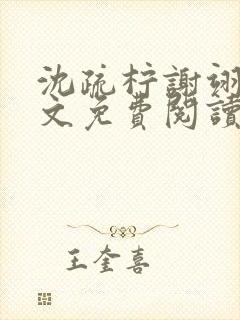 沈疏柠謝翊
文免費閱讀
王奎喜